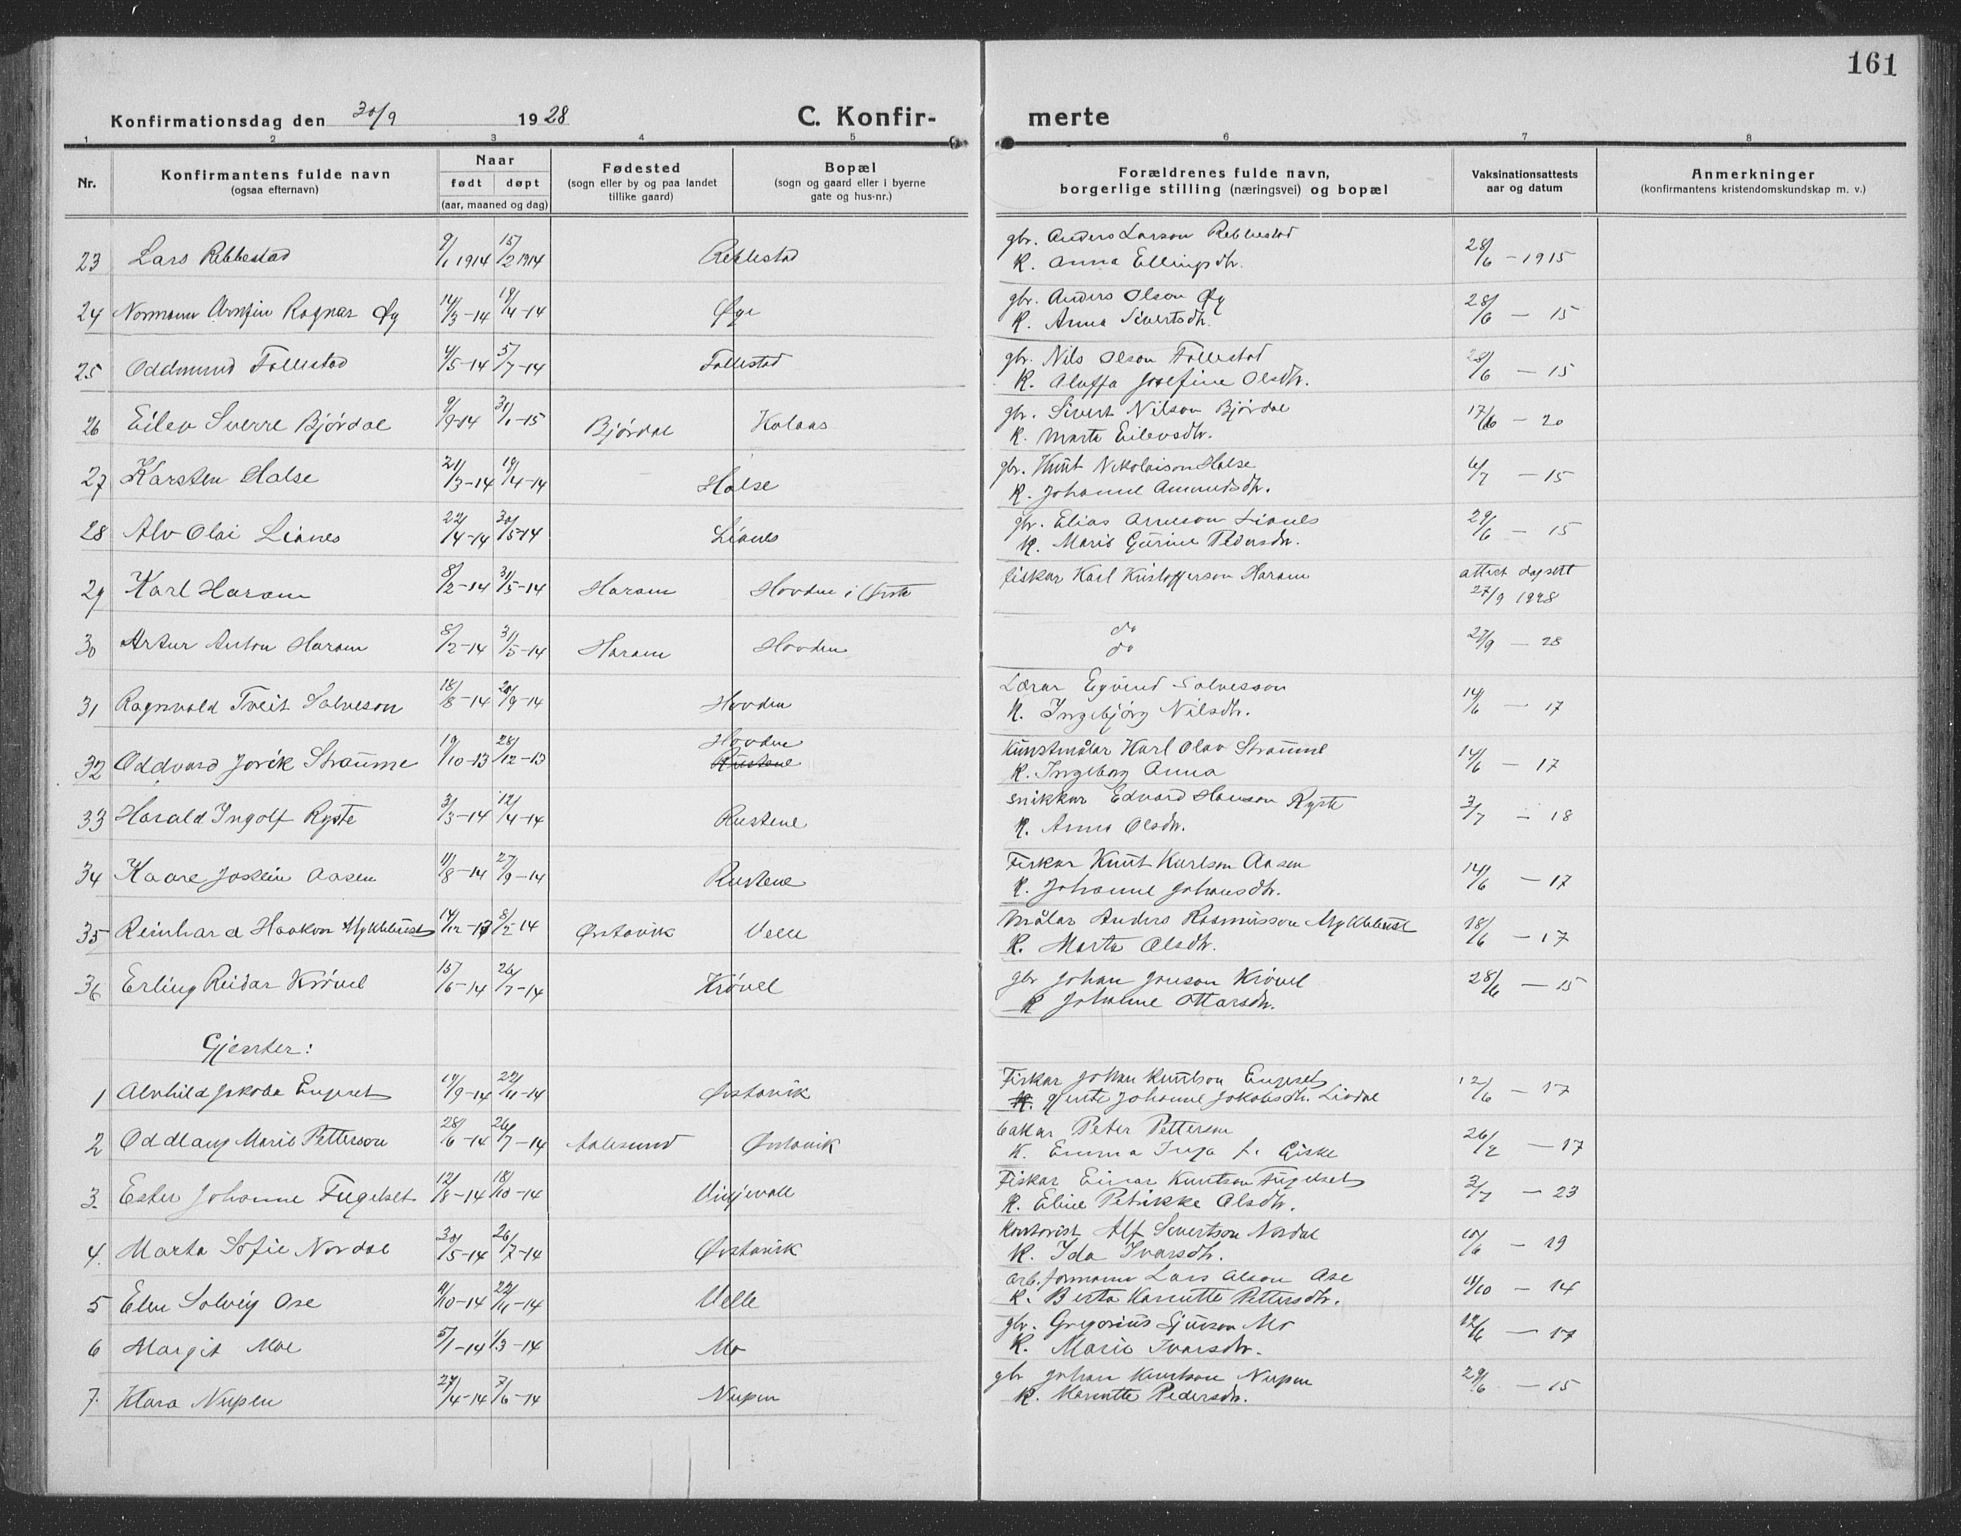 161
Konfirmationsdag den 30/9 1928 C. Konfir- merte
1 2 3 4 5 6 7 8
Nr. Konfirmantens fulde navn (ogsaa efternavn) Naar født døpt (aar, maaned og dag) Fødested (sogn eller by og paa landet tillike gaard) Bopæl (sogn og gaard eller i byerne gate og hus-nr.) Forældrenes fulde navn, borgerlige stilling (næringsvei) og bopæl Vaksinationsattests aar og datum Anmerkninger (konfirmantens kristendomskundskap m. v.)
23 Lars Rebbestad 9/1 1914 15/2 1914 Rebbestad gbr. Anders Larson Rebbestad 28/6 - 1915
K. Anna Ellingsdtr.
24 Normann Arnfin Ragnar Øy 14/3-14 19/4-14 Øye gbr. Anders Olson Øy 28/6 - 15
K. Anna Sivertsdtr.
25 Oddmund Follestad 4/5-14 5/7-14 Follestad gbr. Nils Olson Follestad 28/6 - 15
K. Aluffa Josefine Olsdtr.
26 Eilev Sverre Bjørdal 9/9-14 31/1-15 Bjørdal Kolaas gbr. Sivert Nilson Bjørdal 17/6 - 20
K. Marta Eilevsdtr.
27 Karsten Halse 21/3-14 19/4-14 Halse gbr. Knut Nikolaison Halse 6/7 - 15
K. Johanne Amundsdtr.
28 Alv Olai Lianes 22/4-14 30/5-14 Lianes gbr. Elias Arneson Lianes 29/6 - 15
K. Marie Gurine Pedersdtr.
29 Karl Haram 8/2-14 31/5-14 Haram Hovden i Ørsta fiskar Karl Kristofferson Haram attest dagsett
27/9 1928
30 Artur Anton Haram 8/2-14 31/5-14 Haram Hovden do 27/9 - 28
do
31 Ragnvald Tveit Salveson 18/8-14 20/9-14 Hovden Lærar Eyvind Salvesson 14/6 - 17
K. Ingebjørg Nilsdtr.
32 Oddvard Jorik Straume 19/10-13 28/12-13 Hovden Rustene Kunstmålar Karl Olav Straume 14/6 - 17
K. Ingeborg Anna
33 Harald Ingolf Ryste 3/3-14 12/4-14 Rustene snikkar Edvard Hanson Ryste 3/7 - 18
K. Anna Olsdtr.
34 Kaare Jostein Aasen 11/8-14 27/9-14 Rustene Fiskar Knut Karlson Aasen 14/6 - 17
K. Johanne Johansdtr.
35 Reinhard Haakon Myklebust 14/12-13 8/2-14 Ørstavik Velle Målar Anders Rasmusson Myklebust 18/6 - 17
K. Marta Olsdtr.
36 Erling Reidar Krøvel 15/6-14 26/7-14 Krøvel gbr Johan Jonson Krøvel 28/6 - 15
K Johanne Ottarsdtr.
Gjenter:
1 Alvhild Jakoba Engeset 14/9-14 22/11-14 Ørstavik Fiskar Johan Knutson Engeset 12/6 - 17
K. gjente Johanne Jakobsdtr. Liadal
2 Oddlaug Marie Petterson 28/6-14 26/7-14 Aalesund Ørstavik bakar Peter Petterson 26/2 - 17
K. Emma Inga f. Giske
3. Ester Johanne Fugelset 12/8-14 18/10-14 Vinjevoll Fiskar Einar Knutson Fugelset 3/7 - 23
K. Eline Petrikke Olsdtr.
4. Marta Sofie Nordal 30/5-14 26/7-14 Ørstavik Kontorist Alf Sivertson Nordal 10/6 - 19
K. Ida Ivarsdtr.
5 Elen Solveig Ose 11/10-14 22/11-14 Velle arb.formann Lars Olson Ose 11/10 - 14
K. Berta Hanutte Pettersdtr.
6 Margit Moe 5/1-14 1/3-14 Mo gbr. Gregorius Sjurson Mo 12/6 - 17
K. Marie Ivarsdtr.
7. Klara Nupen 24/4-14 7/6-14 Nupen gbr Johan Knutson Nupen 29/6 - 15
K. Hanutte Pedersdtr.